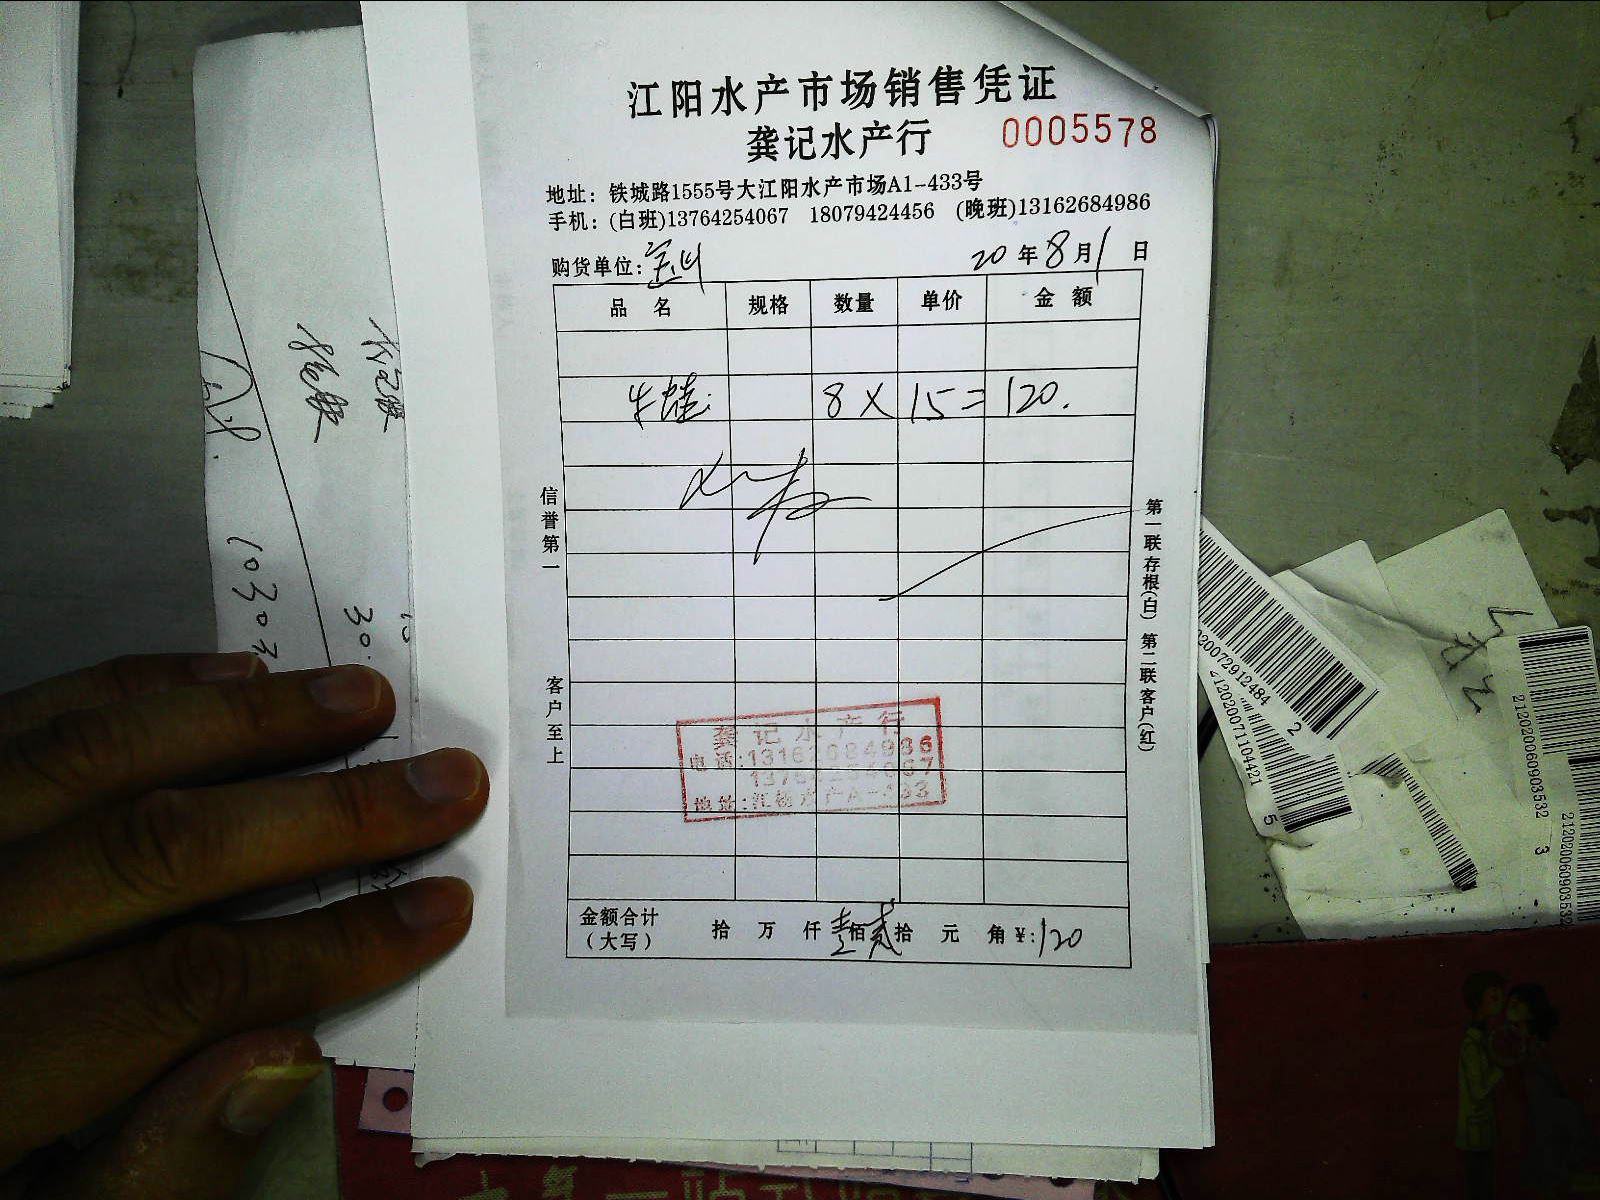 江阳水产市场销售凭证
龚记水产行 0005578
地址：铁城路1555号大江阳水产市场A1-433号
手机：(白班)13764254067 18079424456 (晚班)13162684986
购货单位： 20年8月1日
品名 规格 数量 单价 金额
牛蛙 8 X 15 = 120.
信誉第一
客户至上
第一联存根(白) 第二联客户(红)
龚记水产行
电话:13162684986
地址:江杨水产A-433
金额合计 拾 万 仟 壹佰 贰拾 元 角 ¥:120
（大写）
10303
30.
2120200711044215
2120200609035323